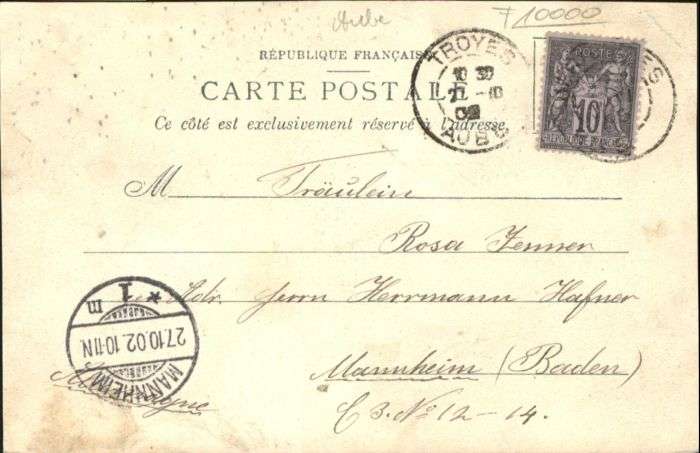 Aube
10000
RÉPUBLIQUE FRANÇAISE
CARTE POSTALE
Ce côté est exclusivement réservé à l'adresse
TROYES
10 30
02
AUBE
POSTES
10
M Fräulein
Rosa Zenner
Adr. Herrn Herrmann Hafner
Mannheim (Baden)
C 3. No 12 - 14.
Allemagne
MANNHEIM
* 1 m
27.10.02.10-11N.